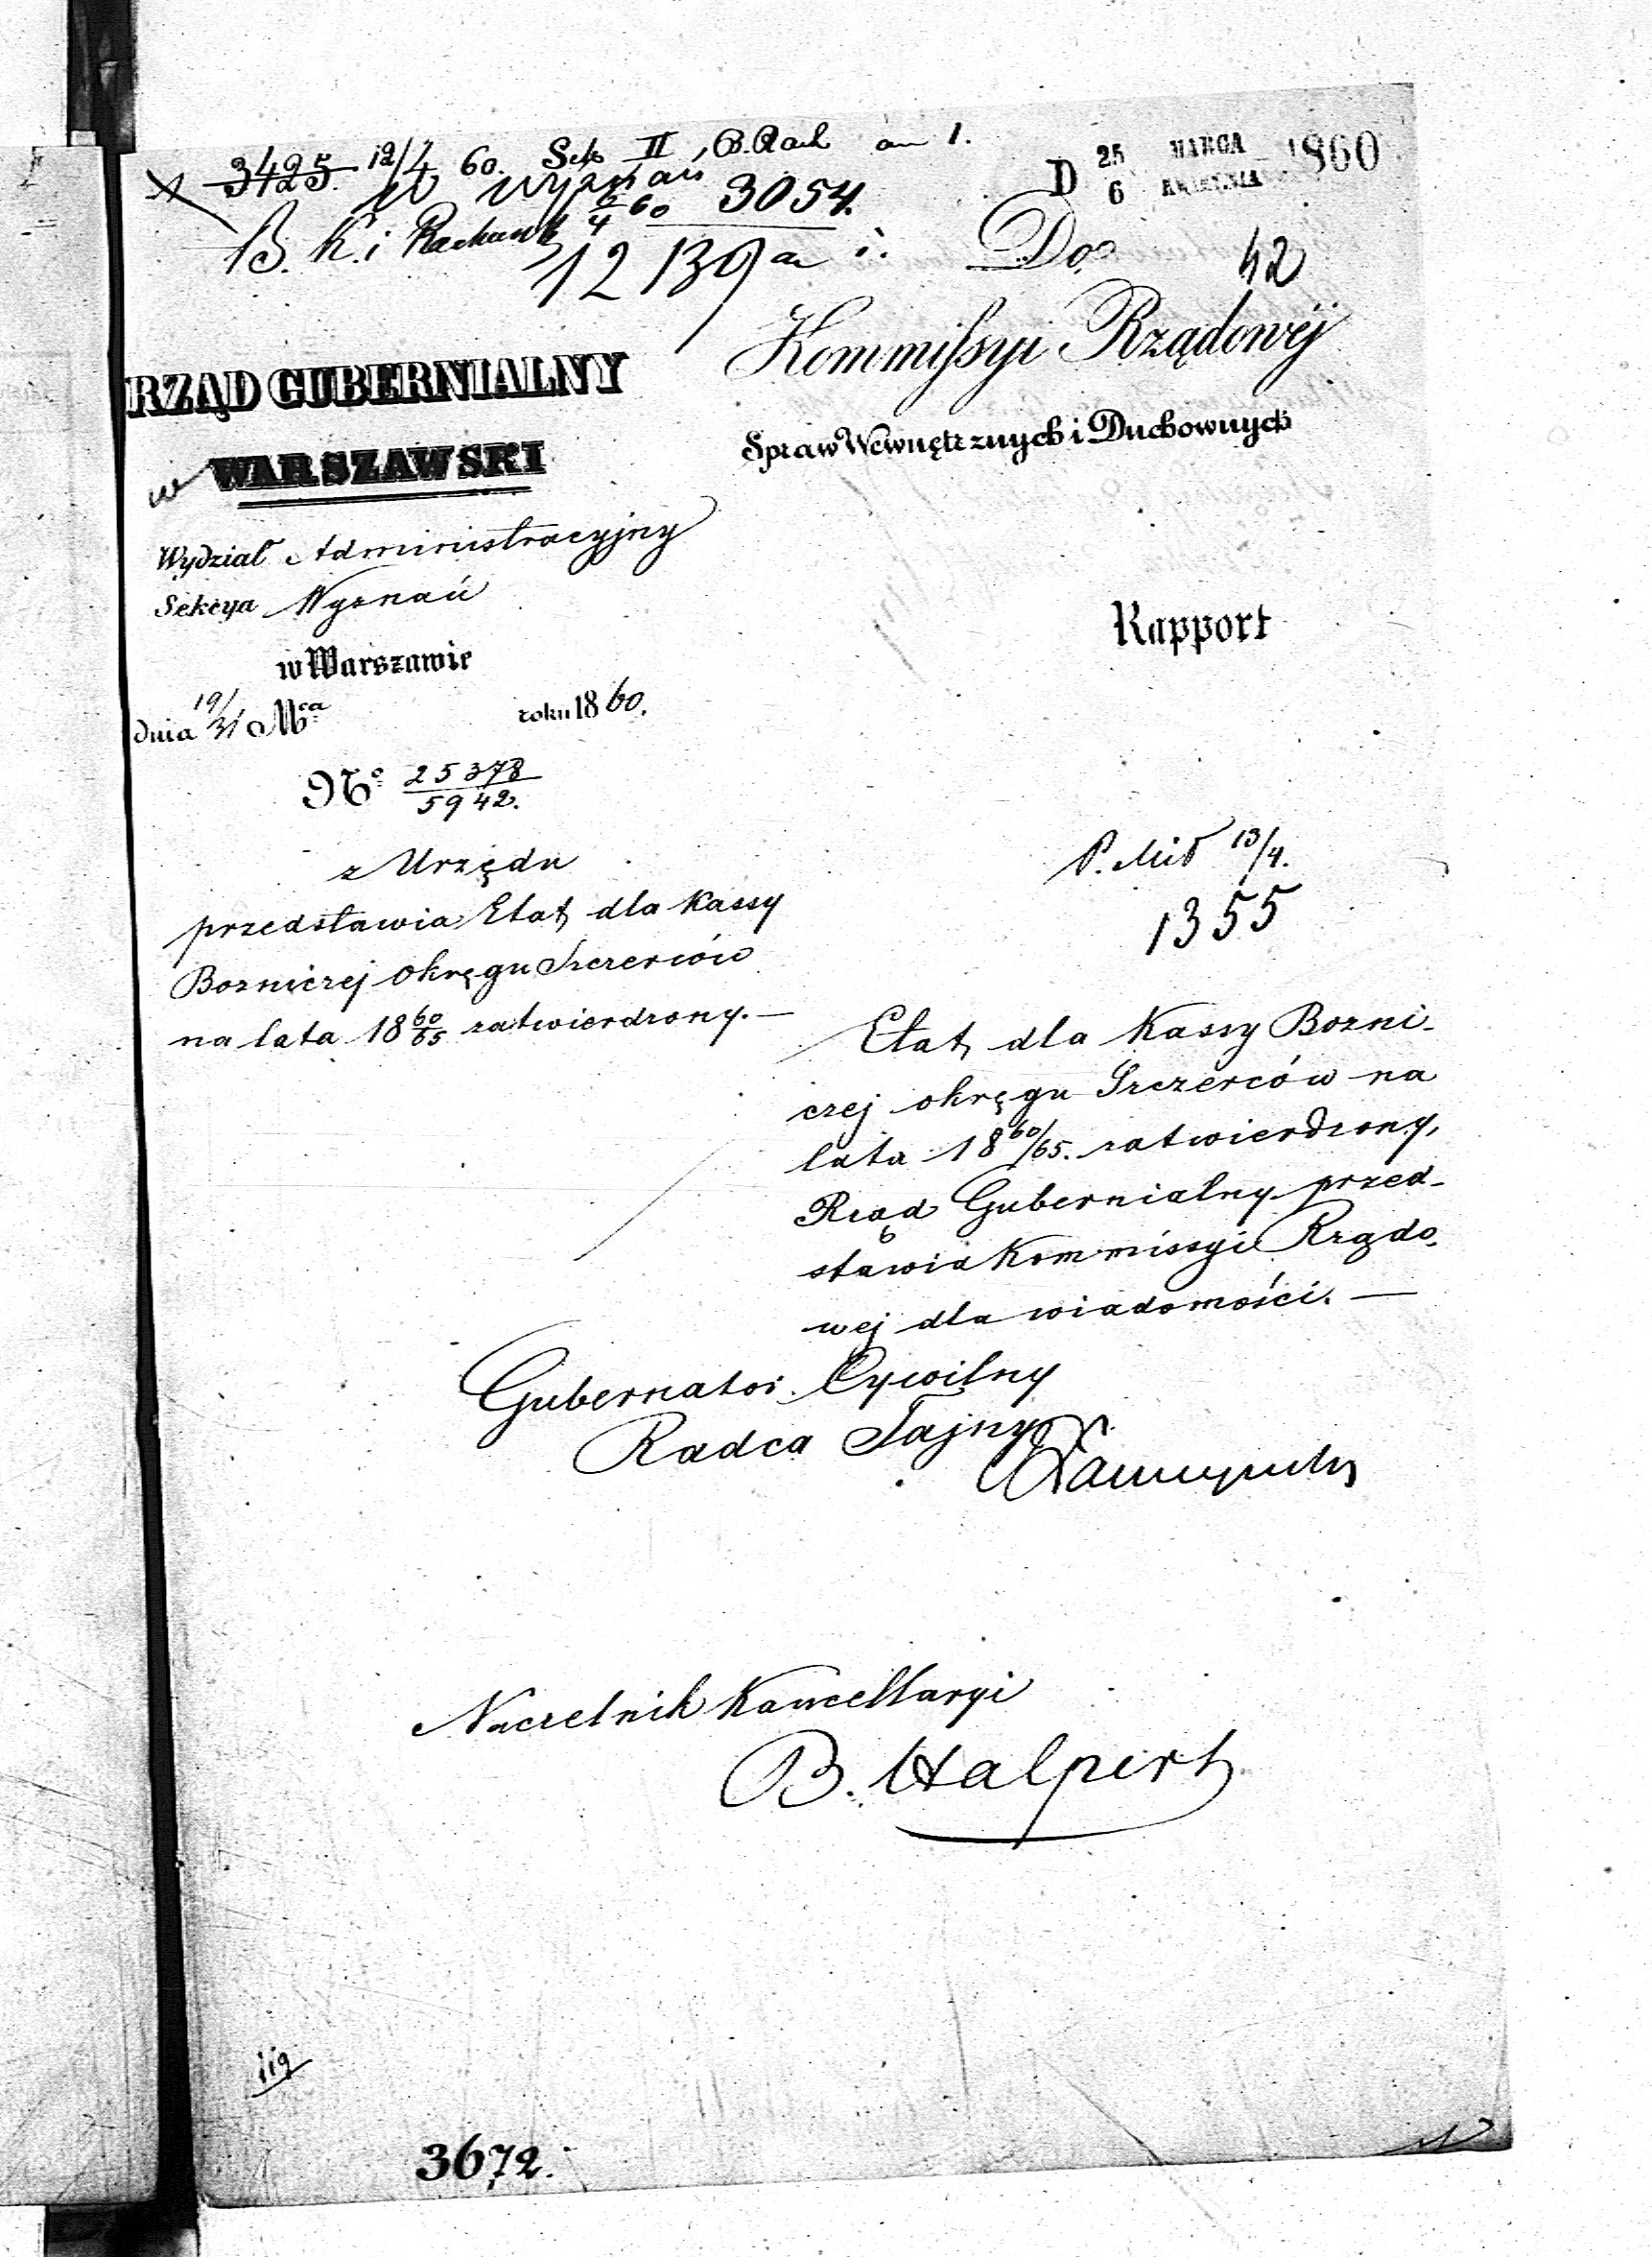 3425. 12/4 60. Sek II, B. Rach
W Wyznań
B. K. i Rachunk 6/4 60 3054.
12139
D 25 MARCA 1860
6 KWIETNIA
Do
42
Kommissyi Rządowéj
Spraw Wewnętrznych i Duchownych
RZĄD GUBERNIALNY
WARSZAWSKI
Wydział Administracyjny
Sekcya Wyznań
w Warszawie
dnia 19/31 Mca roku 1860.
No 25378
5942.
Rapport
z Urzędu
przedstawia Etat dla Kassy
Bozniczej Okręgu Szczerców
na lata 18 60/65 zatwierdzony.—
13/4.
1355
Etat dla Kassy Bozni-
czej okręgu Szczerców na
lata 18 60/65. zatwierdzony,
Rząd Gubernialny przed-
stawia Kommissyi Rządo-
wej dla wiadomości.—
Gubernator Cywilny
Radca Tajny
Naczelnik Kancellaryi
B. Halpert
3672.